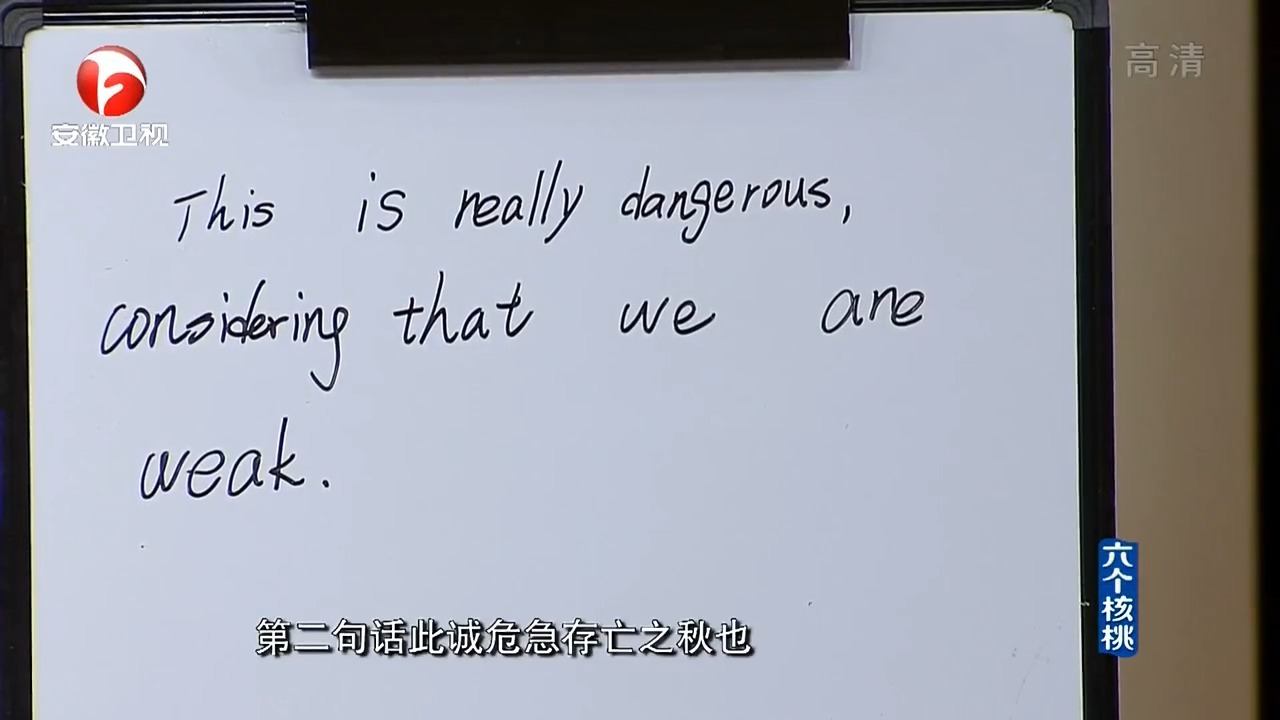 安徽卫视
高清
This is really dangerous,
considering that we are
weak.
六个核桃
第二句话此诚危急存亡之秋也